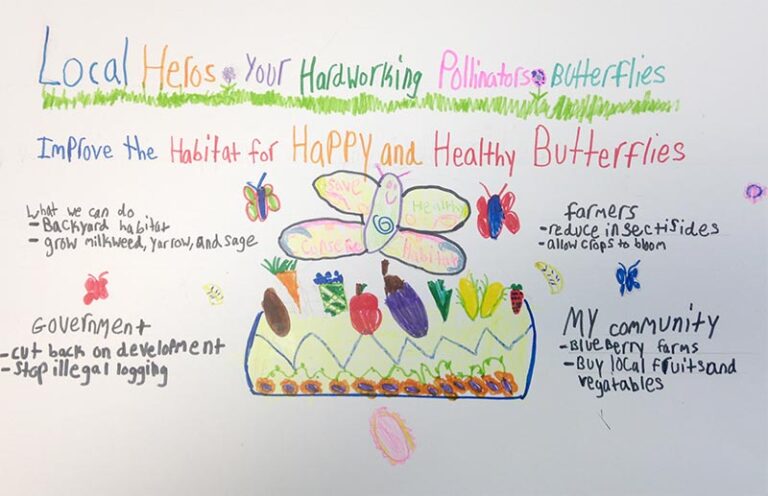 Local Heros Your Hardworking Pollinators Butterflies
Improve the Habitat for Happy and Healthy Butterflies
Save
Healthy
Conserve
Habitat
What we can do
- Backyard habitat
- grow milkweed, yarrow, and sage
farmers
- reduce insectisides
- allow crops to bloom
Government
- cut back on development
- Stop illegal logging
My community
- Blueberry farms
- Buy local fruits and
vegatables